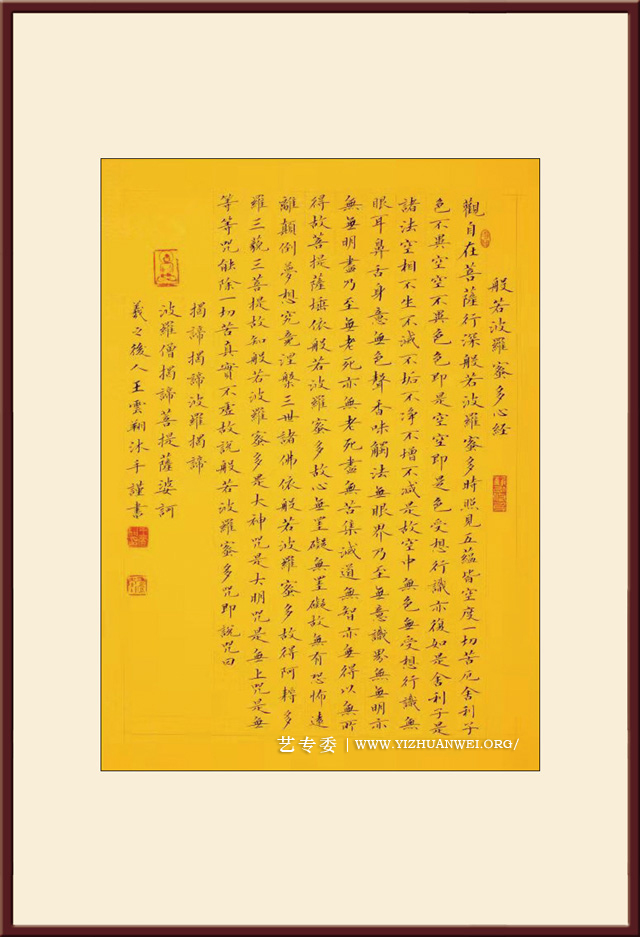 般若波羅蜜多心經
觀自在菩薩行深般若波羅蜜多時照見五蘊皆空度一切苦厄舍利子
色不異空空不異色色即是空空即是色受想行識亦復如是舍利子是
諸法空相不生不滅不垢不净不增不减是故空中無色無受想行識無
眼耳鼻舌身意無色聲香味觸法無眼界乃至無意識界無無明亦
無無明盡乃至無老死亦無老死盡無苦集滅道無智亦無得以無所
得故菩提薩埵依般若波羅蜜多故心無罣礙無罣礙故無有恐怖遠
離顛倒夢想究竟涅槃三世諸佛依般若波羅蜜多故得阿耨多
羅三藐三菩提故知般若波羅蜜多是大神咒是大明咒是無上咒是無
等等咒能除一切苦真實不虛故說般若波羅蜜多咒即說咒曰
揭諦揭諦波羅揭諦
波羅僧揭諦菩提薩婆訶
羲之後人王雲翔沐手謹書
艺专委 | WWW.YIZHUANWEI.ORG/